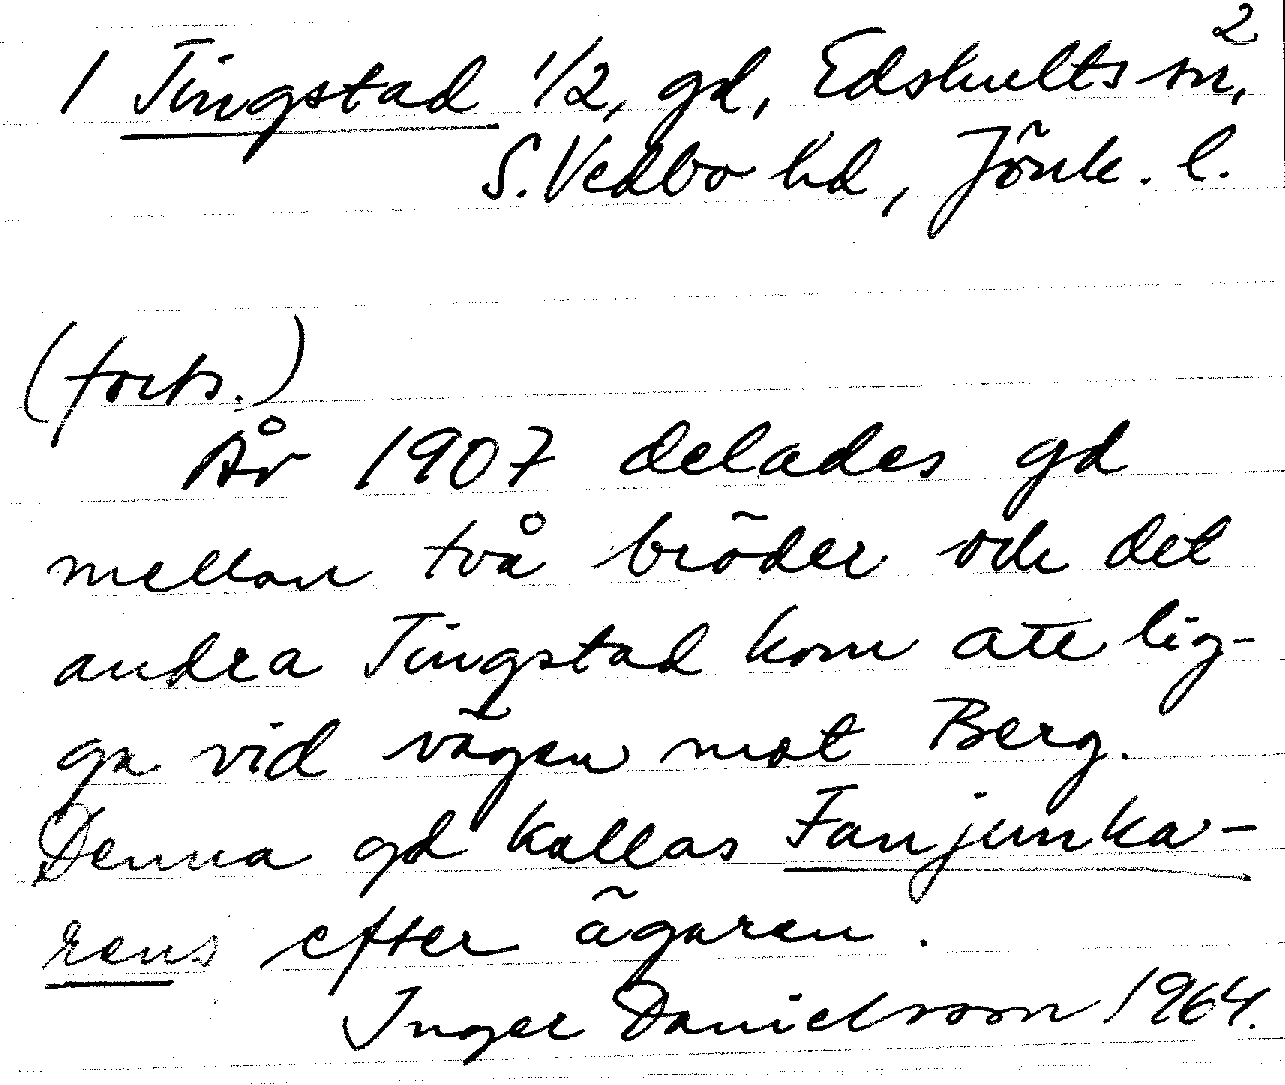 2
1 Tingstad 1/2, gd, Edshults sn,
S. Vedbo hd, Jönk. l.
(forts.)
År 1907 delades gd
mellan två bröder och det
andra Tingstad kom att lig-
ga vid vägen mot Berg.
Denna gd kallas Fanjunka-
rens efter ägaren.
Inger Danielsson 1964.